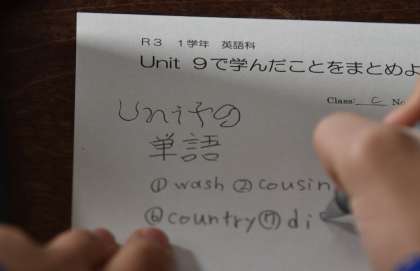 R3 1学年 英語科
Unit 9で学んだことをまとめよ
Class: C No
Unitの
単語
①wash ②cousin
⑥country ⑦di